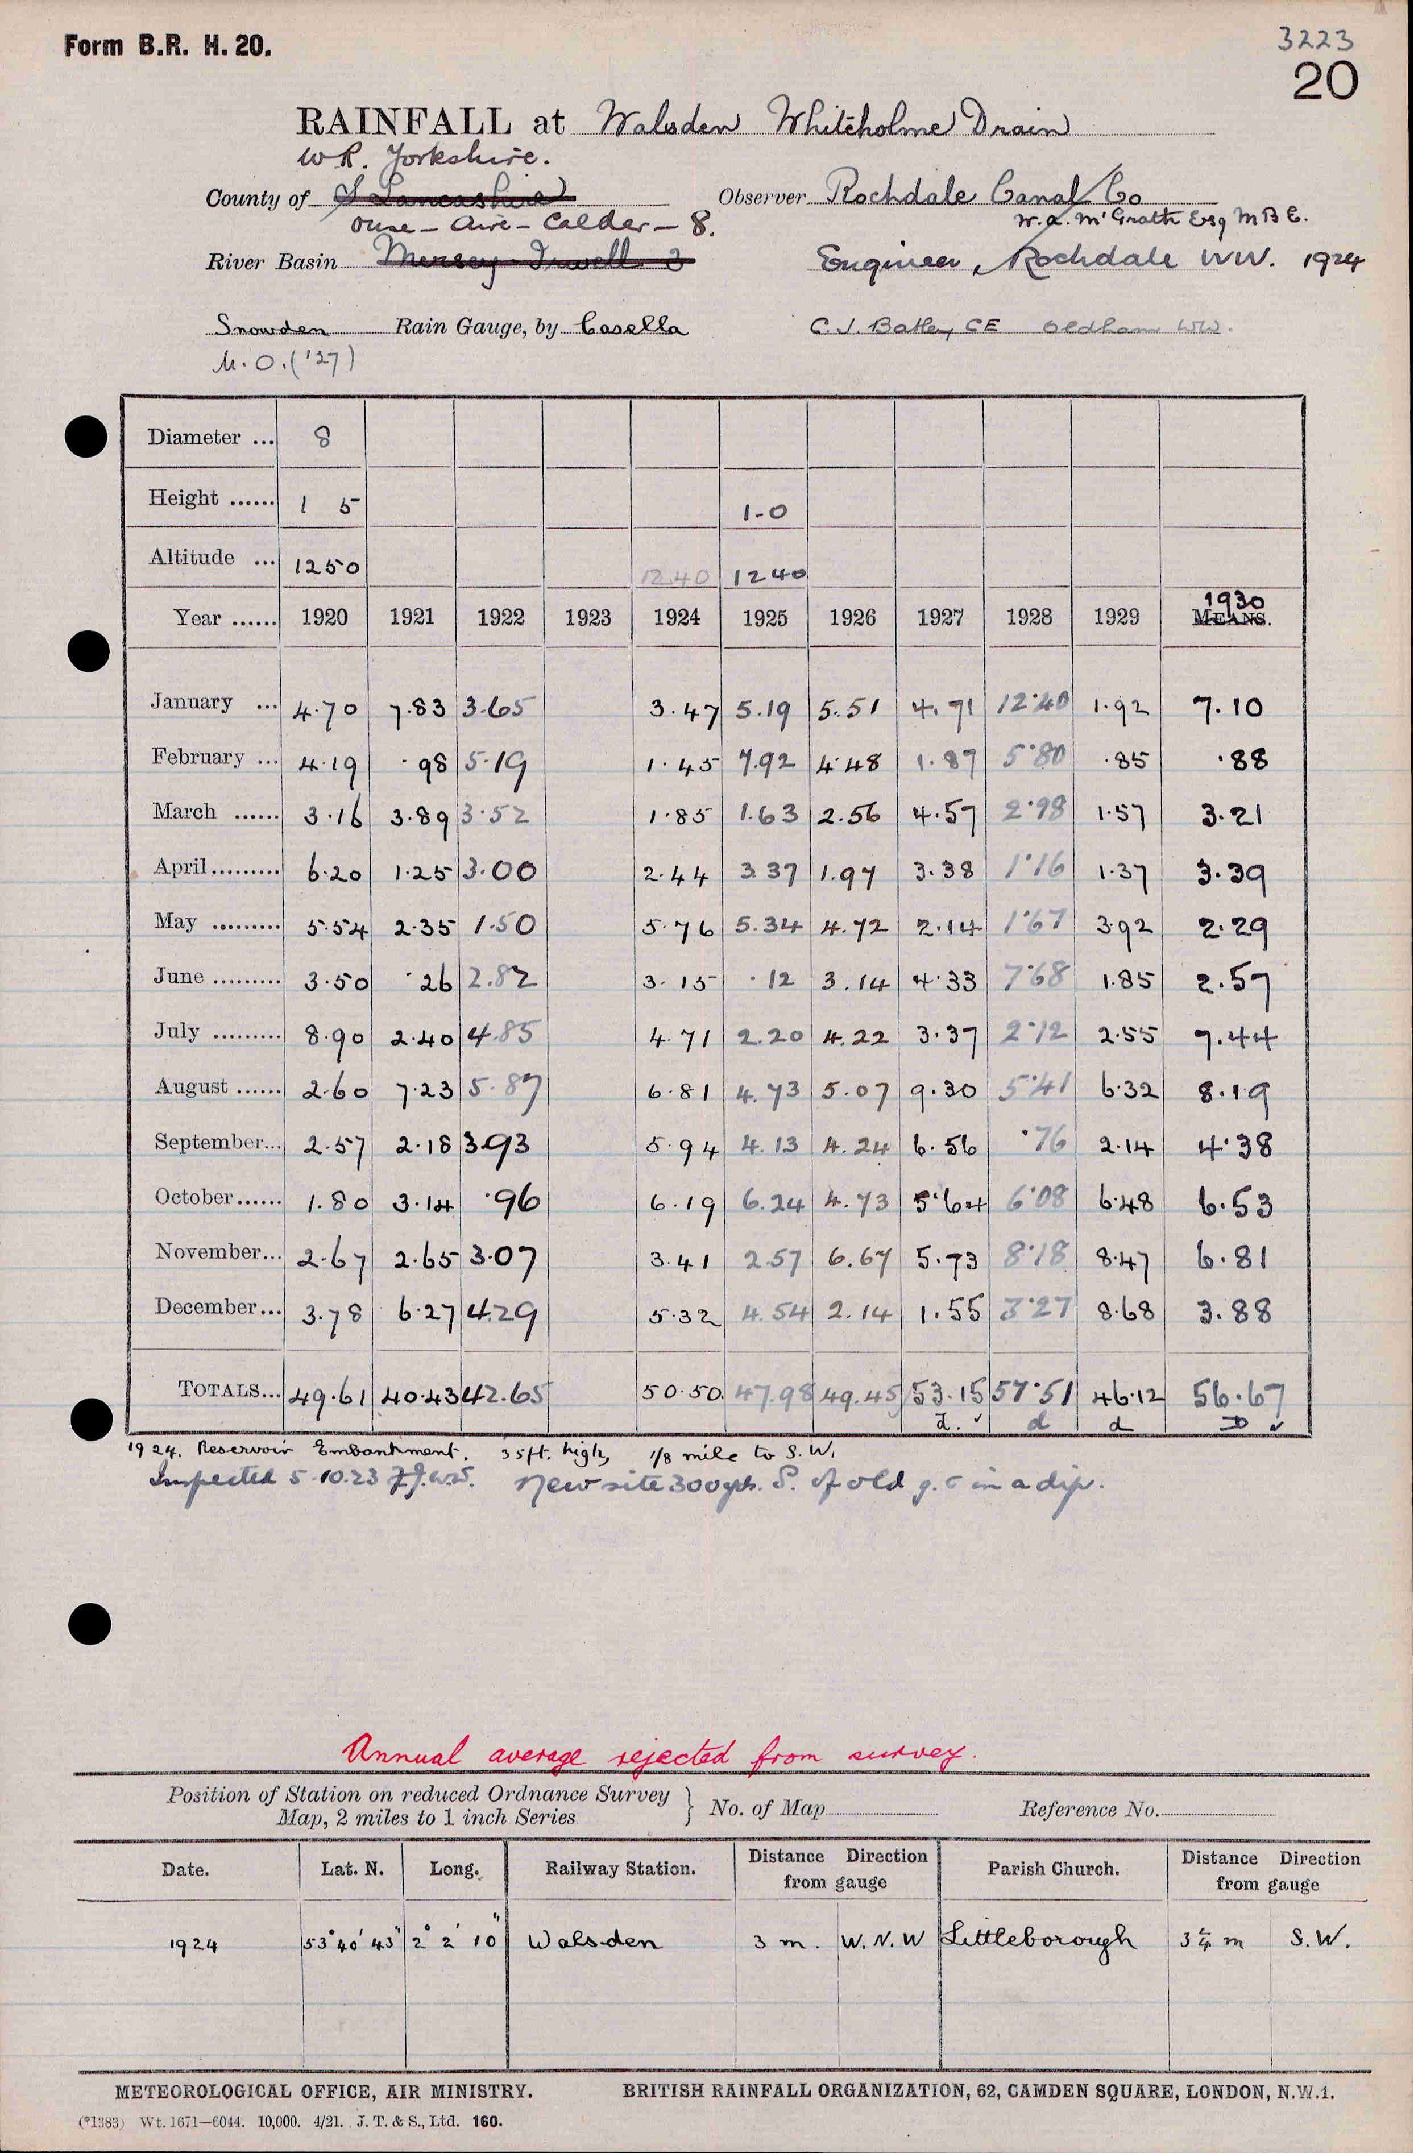 Form B.R. H. 20.
3223
20
RAINFALL at Walsden Whiteholme Drain
W.R. Yorkshire.
County of S Lancashire Observer Rochdale Canal Co
Ouse - Aire - Calder - 8. W.A. McGrath Esq M B E.
River Basin Mersey - Irwell 3 Engineer, Rochdale WW. 1924
Snowden Rain Gauge, by Casella C.J. Batley, CE Oldham WW.
M.O. ('27)
Diameter ... 8
Height ...... 1 5 1-0
Altitude ... 1250 1240 1240
Year ...... 1920 1921 1922 1923 1924 1925 1926 1927 1928 1929 1930 MEANS.
January ... 4.70 7.83 3.65 3.47 5.19 5.51 4.71 12.40 1.92 7.10
February ... 4.19 .98 5.19 1.45 7.92 4.48 1.87 5.80 .85 .88
March ...... 3.16 3.89 3.52 1.85 1.63 2.56 4.57 2.98 1.57 3.21
April ......... 6.20 1.25 3.00 2.44 3.37 1.97 3.38 1.16 1.37 3.39
May ......... 5.54 2.35 1.50 5.76 5.34 4.72 2.14 1.67 3.92 2.29
June ......... 3.50 .26 2.82 3.15 .12 3.14 4.33 7.68 1.85 2.57
July ......... 8.90 2.40 4.85 4.71 2.20 4.22 3.37 2.12 2.55 7.44
August ...... 2.60 7.23 5.87 6.81 4.73 5.07 9.30 5.41 6.32 8.19
September... 2.57 2.18 3.93 5.94 4.13 4.24 6.56 .76 2.14 4.38
October...... 1.80 3.14 .96 6.19 6.24 4.73 5.64 6.08 6.48 6.53
November... 2.67 2.65 3.07 3.41 2.57 6.67 5.73 8.18 8.47 6.81
December... 3.78 6.27 4.29 5.32 4.54 2.14 1.55 3.27 8.68 3.88
TOTALS... 49.61 40.43 42.65 50.50 47.98 49.45 53.15 57.51 46.12 56.67
d. ✓ d d D ✓
1924. Reservoir Embankment. 35ft. high, 1/8 mile to S.W.
Inspected 5.10.23 New site 300yds. S. of old g. & in a dip.
Annual average rejected from survey.
Position of Station on reduced Ordnance Survey
Map, 2 miles to 1 inch Series } No. of Map Reference No.
Date. Lat. N. Long. Railway Station. Distance Direction from gauge Parish Church. Distance Direction from gauge
1924 53° 40' 43" 2° 2' 10" Walsden 3 m. W.N.W Littleborough 3¼ m S.W.
METEOROLOGICAL OFFICE, AIR MINISTRY. BRITISH RAINFALL ORGANIZATION, 62, CAMDEN SQUARE, LONDON, N.W.1.
(*1383) Wt. 1671—6044. 10,000. 4/21. J. T. & S., Ltd. 160.